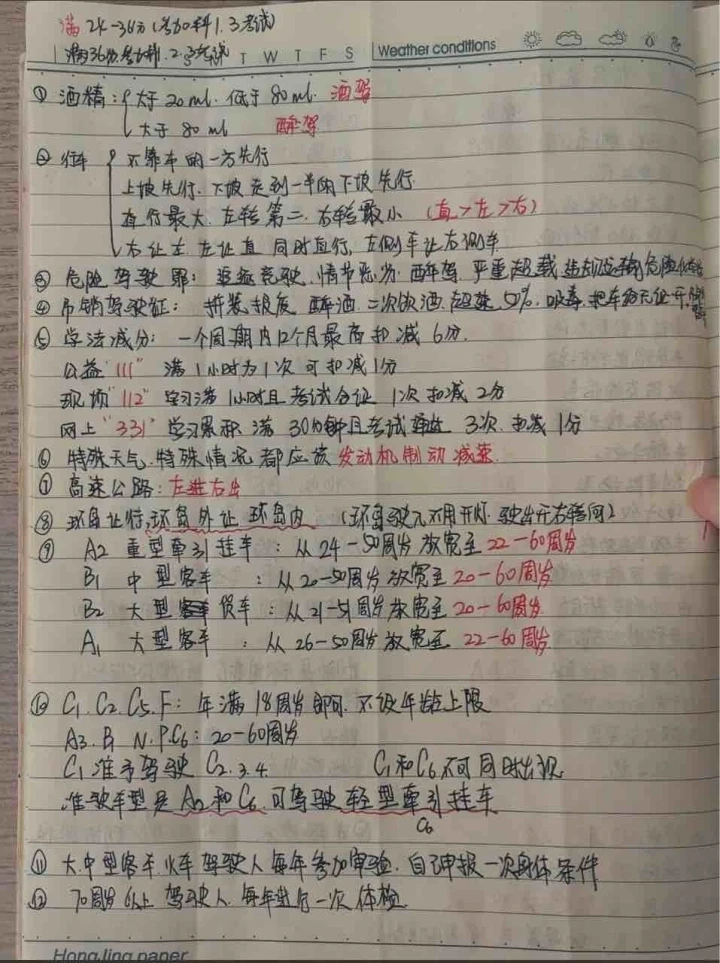 满24-36分(参加科1.3考试)
满36分参加科1.2.3考试 T W T F S Weather conditions
① 酒精: 大于20ml.低于80ml. 酒驾
大于80ml 醉驾
② 行车 不靠车的一方先行
上坡先行.下坡走到一半的下坡先行.
直行最大.左转第二.右转最小 (直>左>右)
右让左.左让直 同时直行.左侧车让右侧车
③ 危险驾驶罪: 追逐竞驶.情节恶劣.醉驾.严重超载
④ 吊销驾驶证: 拼装报废 醉酒.二次饮酒.超速50%.吸毒.把车给无证开
⑤ 学法减分: 一个周期内12个月最高扣减6分.
公益"111" 满1小时为1次可扣减1分
现场"112" 学习满1小时且考试合证 1次扣减2分
网上"331" 学习累积满30分钟且考试 3次.扣减1分
⑥ 特殊天气.特殊情况都应该发动机制动减速.
⑦ 高速公路: 左进右出
⑧ 环岛让行,环岛外让环岛内 (环岛驶入不用开灯.驶出开右转向)
⑨ A2 重型牵引挂车: 从24-50周岁放宽至22-60周岁
B1 中型客车: 从20-50周岁放宽至20-60周岁
B2 大型货车: 从21-51周岁放宽至20-60周岁
A1 大型客车: 从26-50周岁放宽至22-60周岁.
⑩ C1.C2.C5.F: 年满18周岁即可.不设年龄上限
A3.B N.P.C6: 20-60周岁
C1准予驾驶C2.3.4 C1和C6不可同时出现.
准驶车型是A2和C6.可驾驶轻型牵引挂车
C6
⑪ 大.中型客车.火车驾驶人每年参加审验.自己申报一次身体条件
⑫ 70周岁以上驾驶人.每年进行一次体检.
HongJing paper